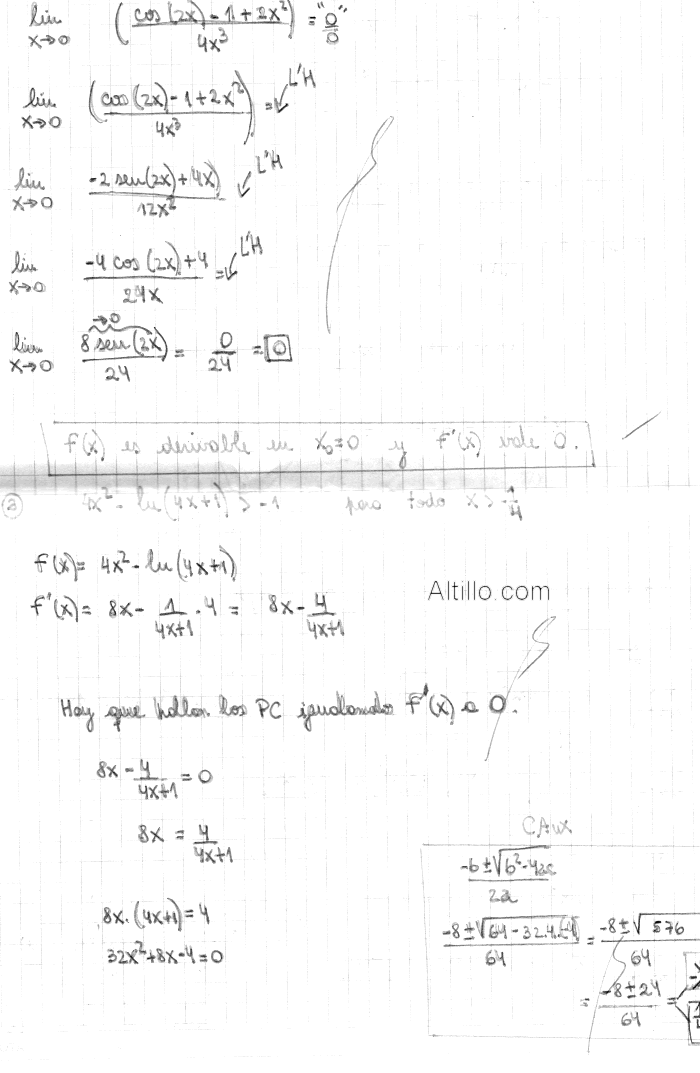 lim x→0 (cos(2x) - 1 + 2x² / 4x³) = "0/0"
lim x→0 (cos(2x) - 1 + 2x² / 4x³) = L'H
lim x→0 -2 sen(2x) + 4x) / 12x² L'H
lim x→0 -4 cos(2x) + 4 / 24x = L'H
→0
lim x→0 8 sen(2x) / 24 = 0/24 = 0
f(x) es derivable en x₀=0 y f'(x) vale 0.
② 4x² - ln(4x+1) > -1 para todo x > -1/4
f(x) = 4x² - ln(4x+1)
Altillo.com
f'(x) = 8x - 1/4x+1 . 4 = 8x - 4/4x+1
Hay que hallar los PC igualando f'(x) a 0.
8x - 4/4x+1 = 0
8x = 4/4x+1
8x.(4x+1) = 4
32x²+8x-4=0
CAux
-b±√b²-4ac / 2a
-8±√64-32.4.(-4) / 64 = -8±√576 / 64
= -8±24 / 64 =